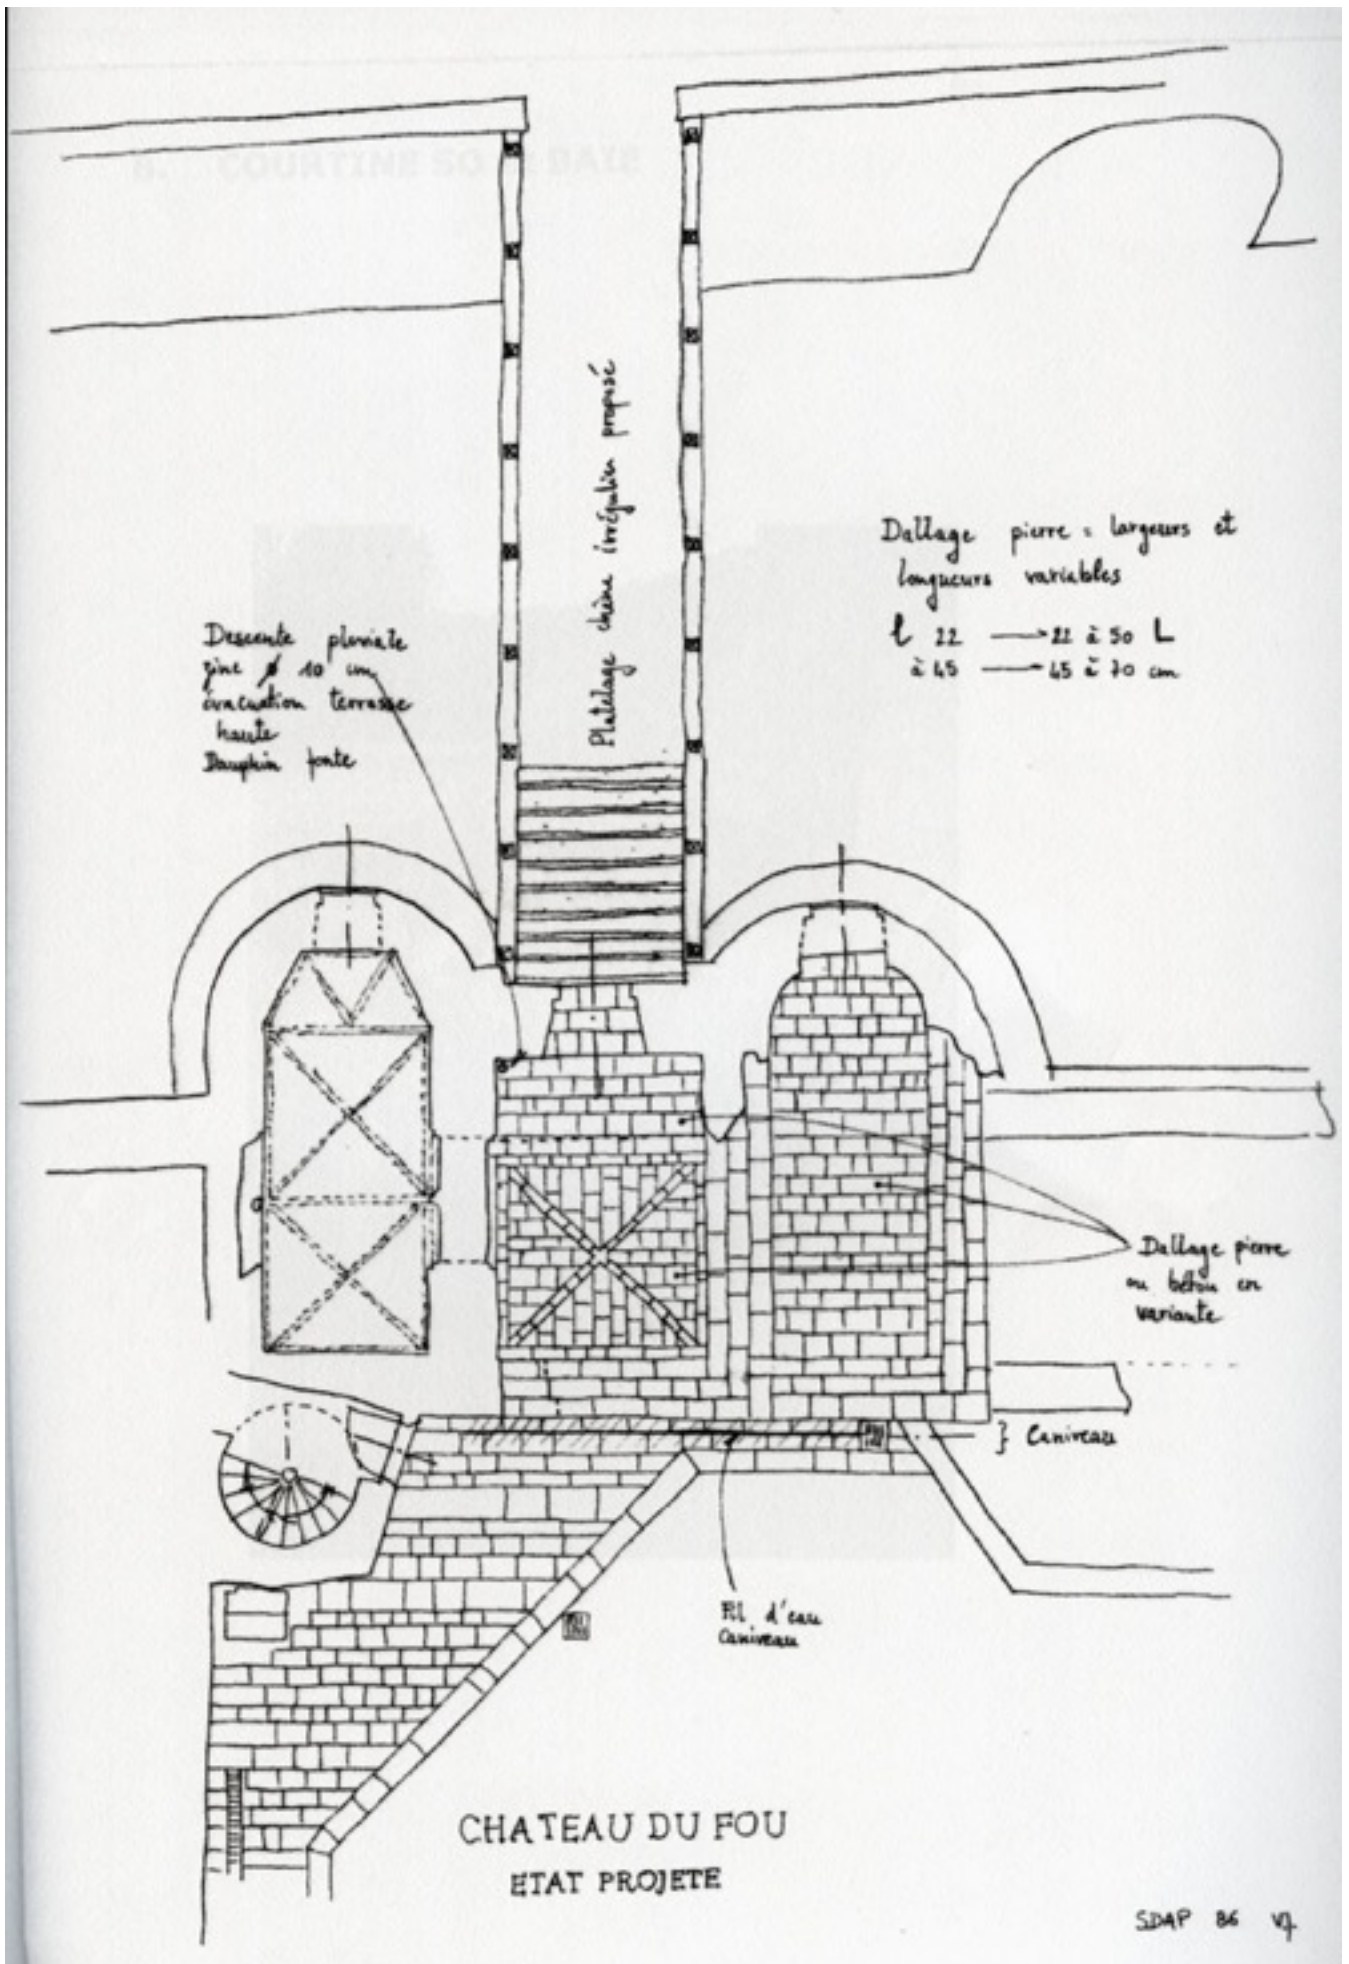 B. COURTINE SO BAIE
Platelage chêne irrégulier proposé
Dallage pierre : largeurs et
longueurs variables
l 22 → 22 à 50 L
à 45 → 45 à 70 cm
Descente pluviale
zinc ø 10 cm
évacuation terrasse
haute
Dauphin fonte
Dallage pierre
ou béton en
variante
} Caniveau
Fil d'eau
Caniveau
CHATEAU DU FOU
ETAT PROJETE
SDAP 86